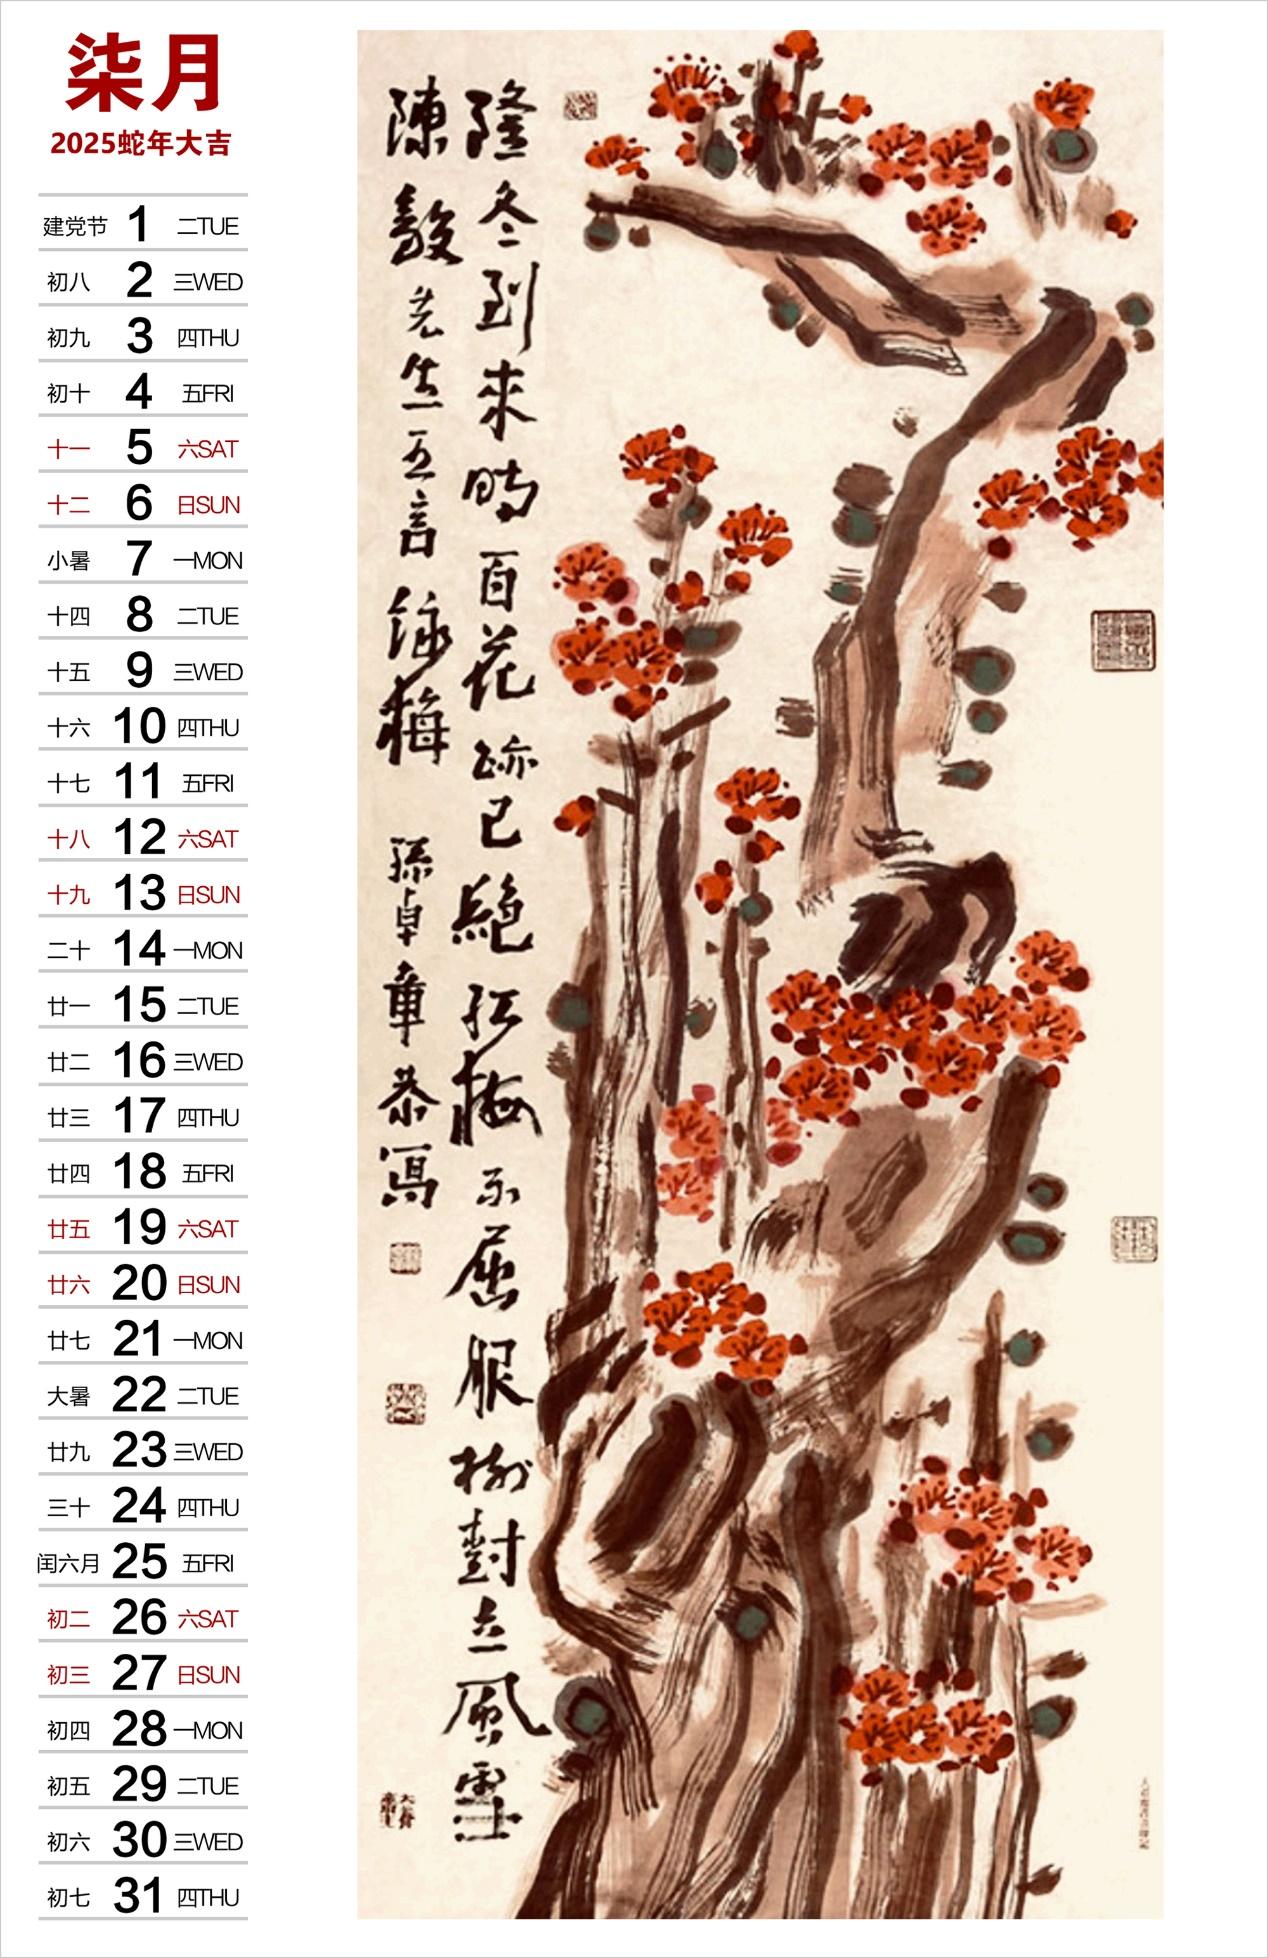 柒月
2025蛇年大吉
建党节 1 二TUE
初八 2 三WED
初九 3 四THU
初十 4 五FRI
十一 5 六SAT
十二 6 日SUN
小暑 7 一MON
十四 8 二TUE
十五 9 三WED
十六 10 四THU
十七 11 五FRI
十八 12 六SAT
十九 13 日SUN
二十 14 一MON
廿一 15 二TUE
廿二 16 三WED
廿三 17 四THU
廿四 18 五FRI
廿五 19 六SAT
廿六 20 日SUN
廿七 21 一MON
大暑 22 二TUE
廿九 23 三WED
三十 24 四THU
闰六月 25 五FRI
初二 26 六SAT
初三 27 日SUN
初四 28 一MON
初五 29 二TUE
初六 30 三WED
初七 31 四THU
隆冬到來時百花跡已絕紅梅不屈服樹樹立風雪
陳毅先生五言詠梅 孫卓章恭寫